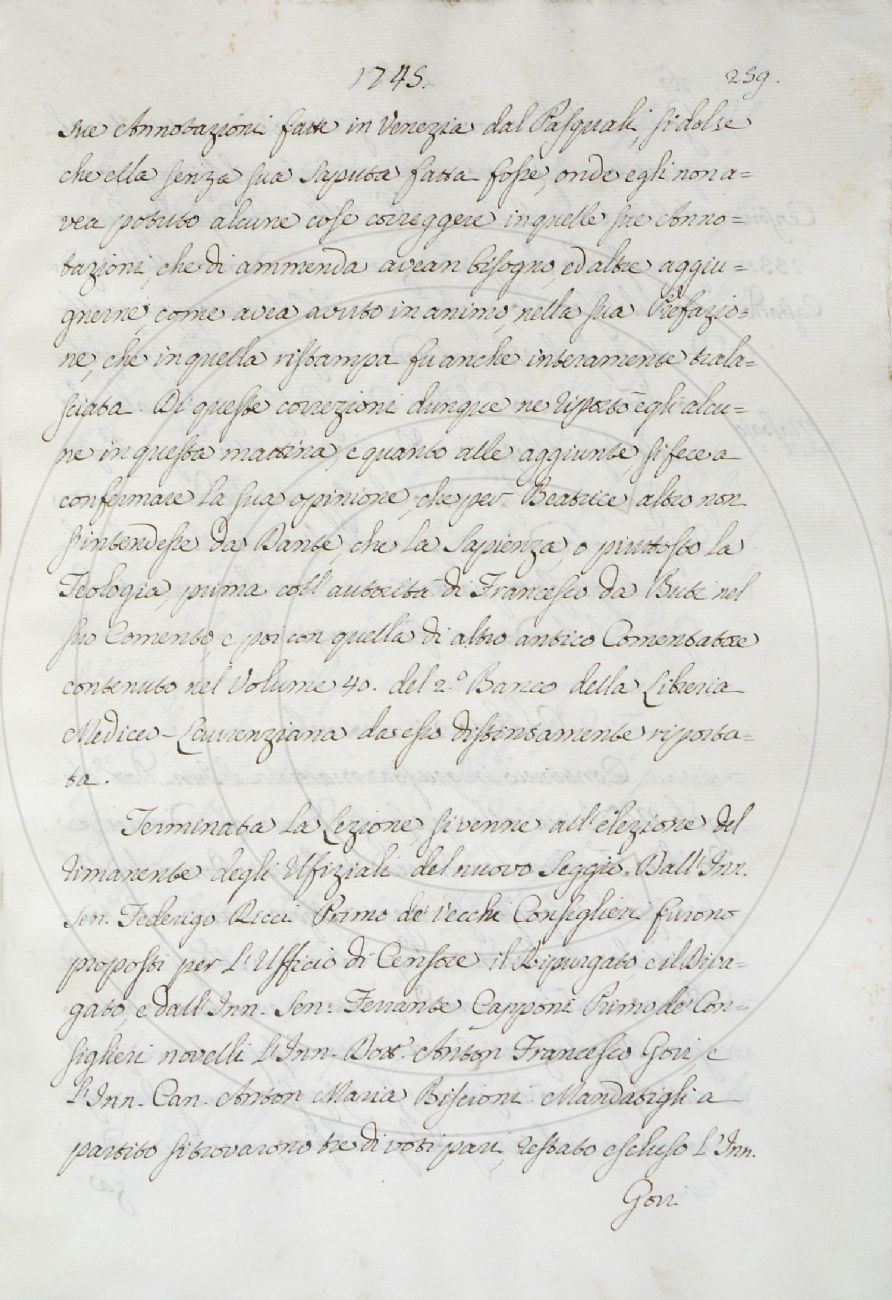 1745.
259.
sue Annotazioni fatte in Venezia dal Pasquali, si dolse
che ella senza sua saputa fatta fosse, onde egli non a=
vea potuto alcune cose correggere in quelle sue Anno=
tazioni, che di ammenda avean bisogno, ed altre aggiu=
gnerne, come avea avuto in animo, nella sua Prefazio=
ne, che in quella ristampa fu anche interamente trala=
sciata. Di queste correzioni dunque ne riportò egli alcu=
ne in questa mattina, e quanto alle aggiunte, si fece a
confermare la sua opinione, che per Beatrice altro non
s'intendesse da Dante, che la Sapienza, o piuttosto la
Teologia, prima coll'autorita di Francesco da Buti nel
suo Comento, e poi con quella di altro antico Comentatore
contenuto nel Volume 40. del 2.° Banco della Libreria
Mediceo-Laurenziana da esso distintamente riporta=
ta.
Terminata la Lezione, si venne all'elezione del
rimanente degli Ufiziali del nuovo Seggio. Dall'Inn.
Sen. Federigo Ricci Primo de' Vecchi Consiglieri furono
proposti per l'Ufficio di Censore il Ripurgato e il Diva=
gato, e dall'Inn. Sen. Ferrante Capponi Primo de' Con=
siglieri novelli l'Inn. Dott. Anton Francesco Gori, e
l'Inn. Can. Anton Maria Biscioni. Mandatigli a
partito si trovarono tre di voti pari, restato escluso l'Inn.
Gori